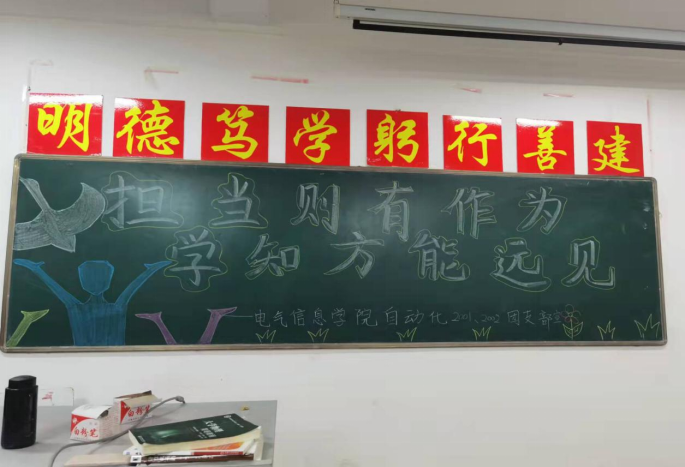 明德笃学躬行善建
担当则有作为
学知方能远见
——电气信息学院自动化2001、2002团支部
白粉笔
大学物理